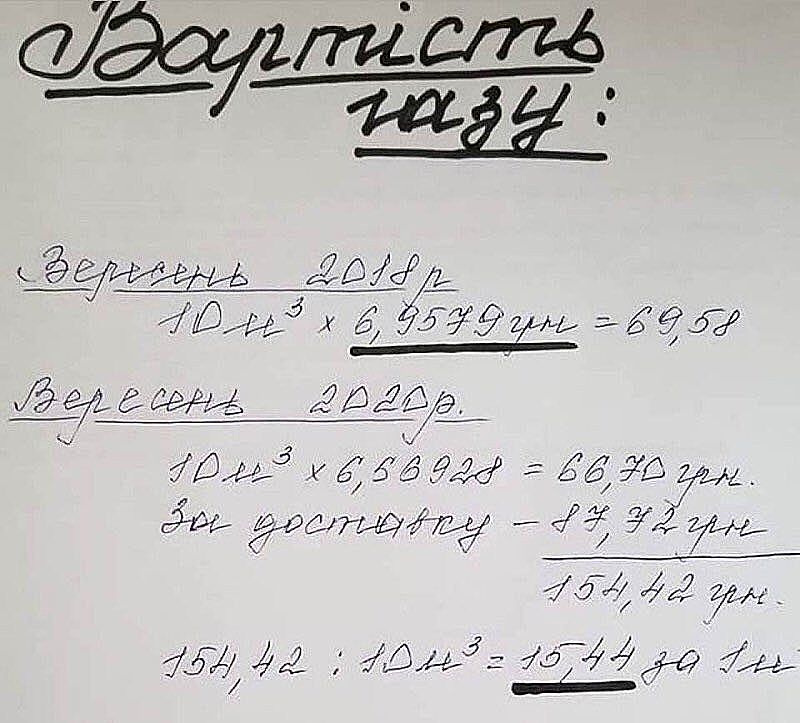 Вартість
газу:
Вересень 2018р
10м³ × 6,9579грн = 69,58
Вересень 2020р.
10м³ × 6,66928 = 66,70 грн.
За доставку – 87,72 грн
154,42 грн.
154,42 : 10м³ = 15,44 за 1м